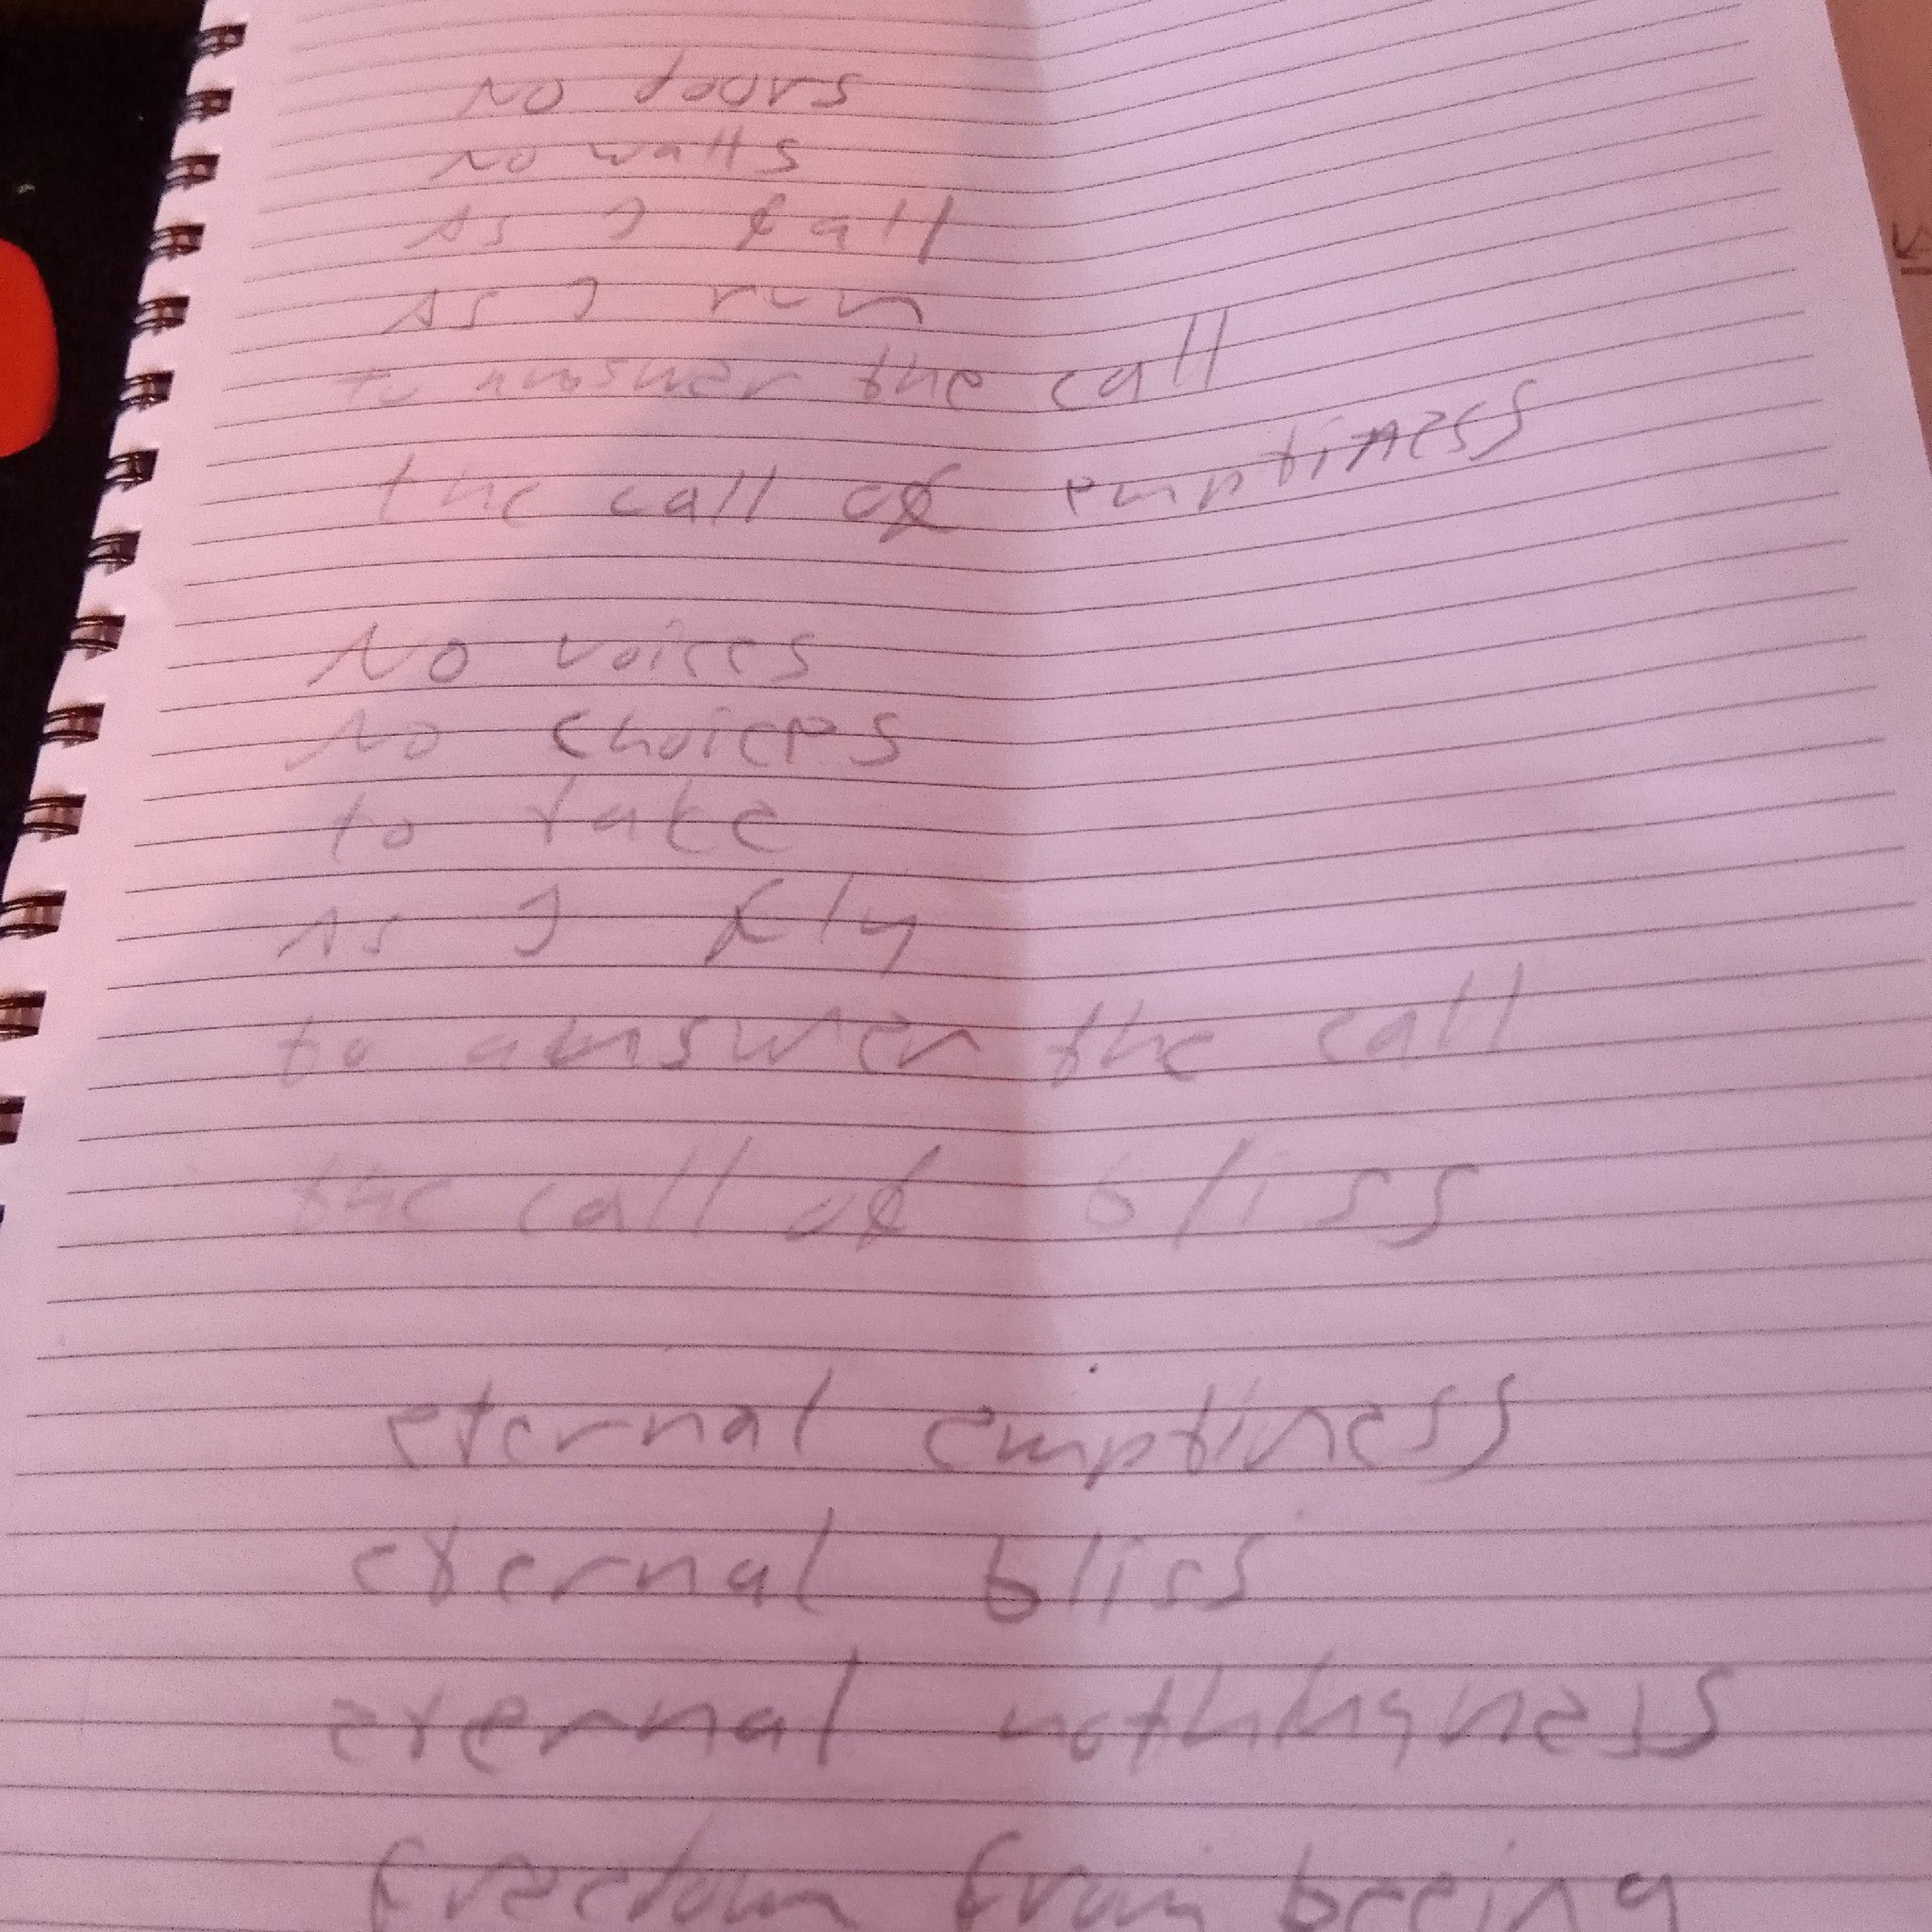 No doors
No walls
As I fall
As I run
to answer the call
the call of emptiness
No voices
No choices
to take
As I fly
to answer the call
the call of bliss
eternal emptiness
eternal bliss
eternal nothingness
freedom from beeing